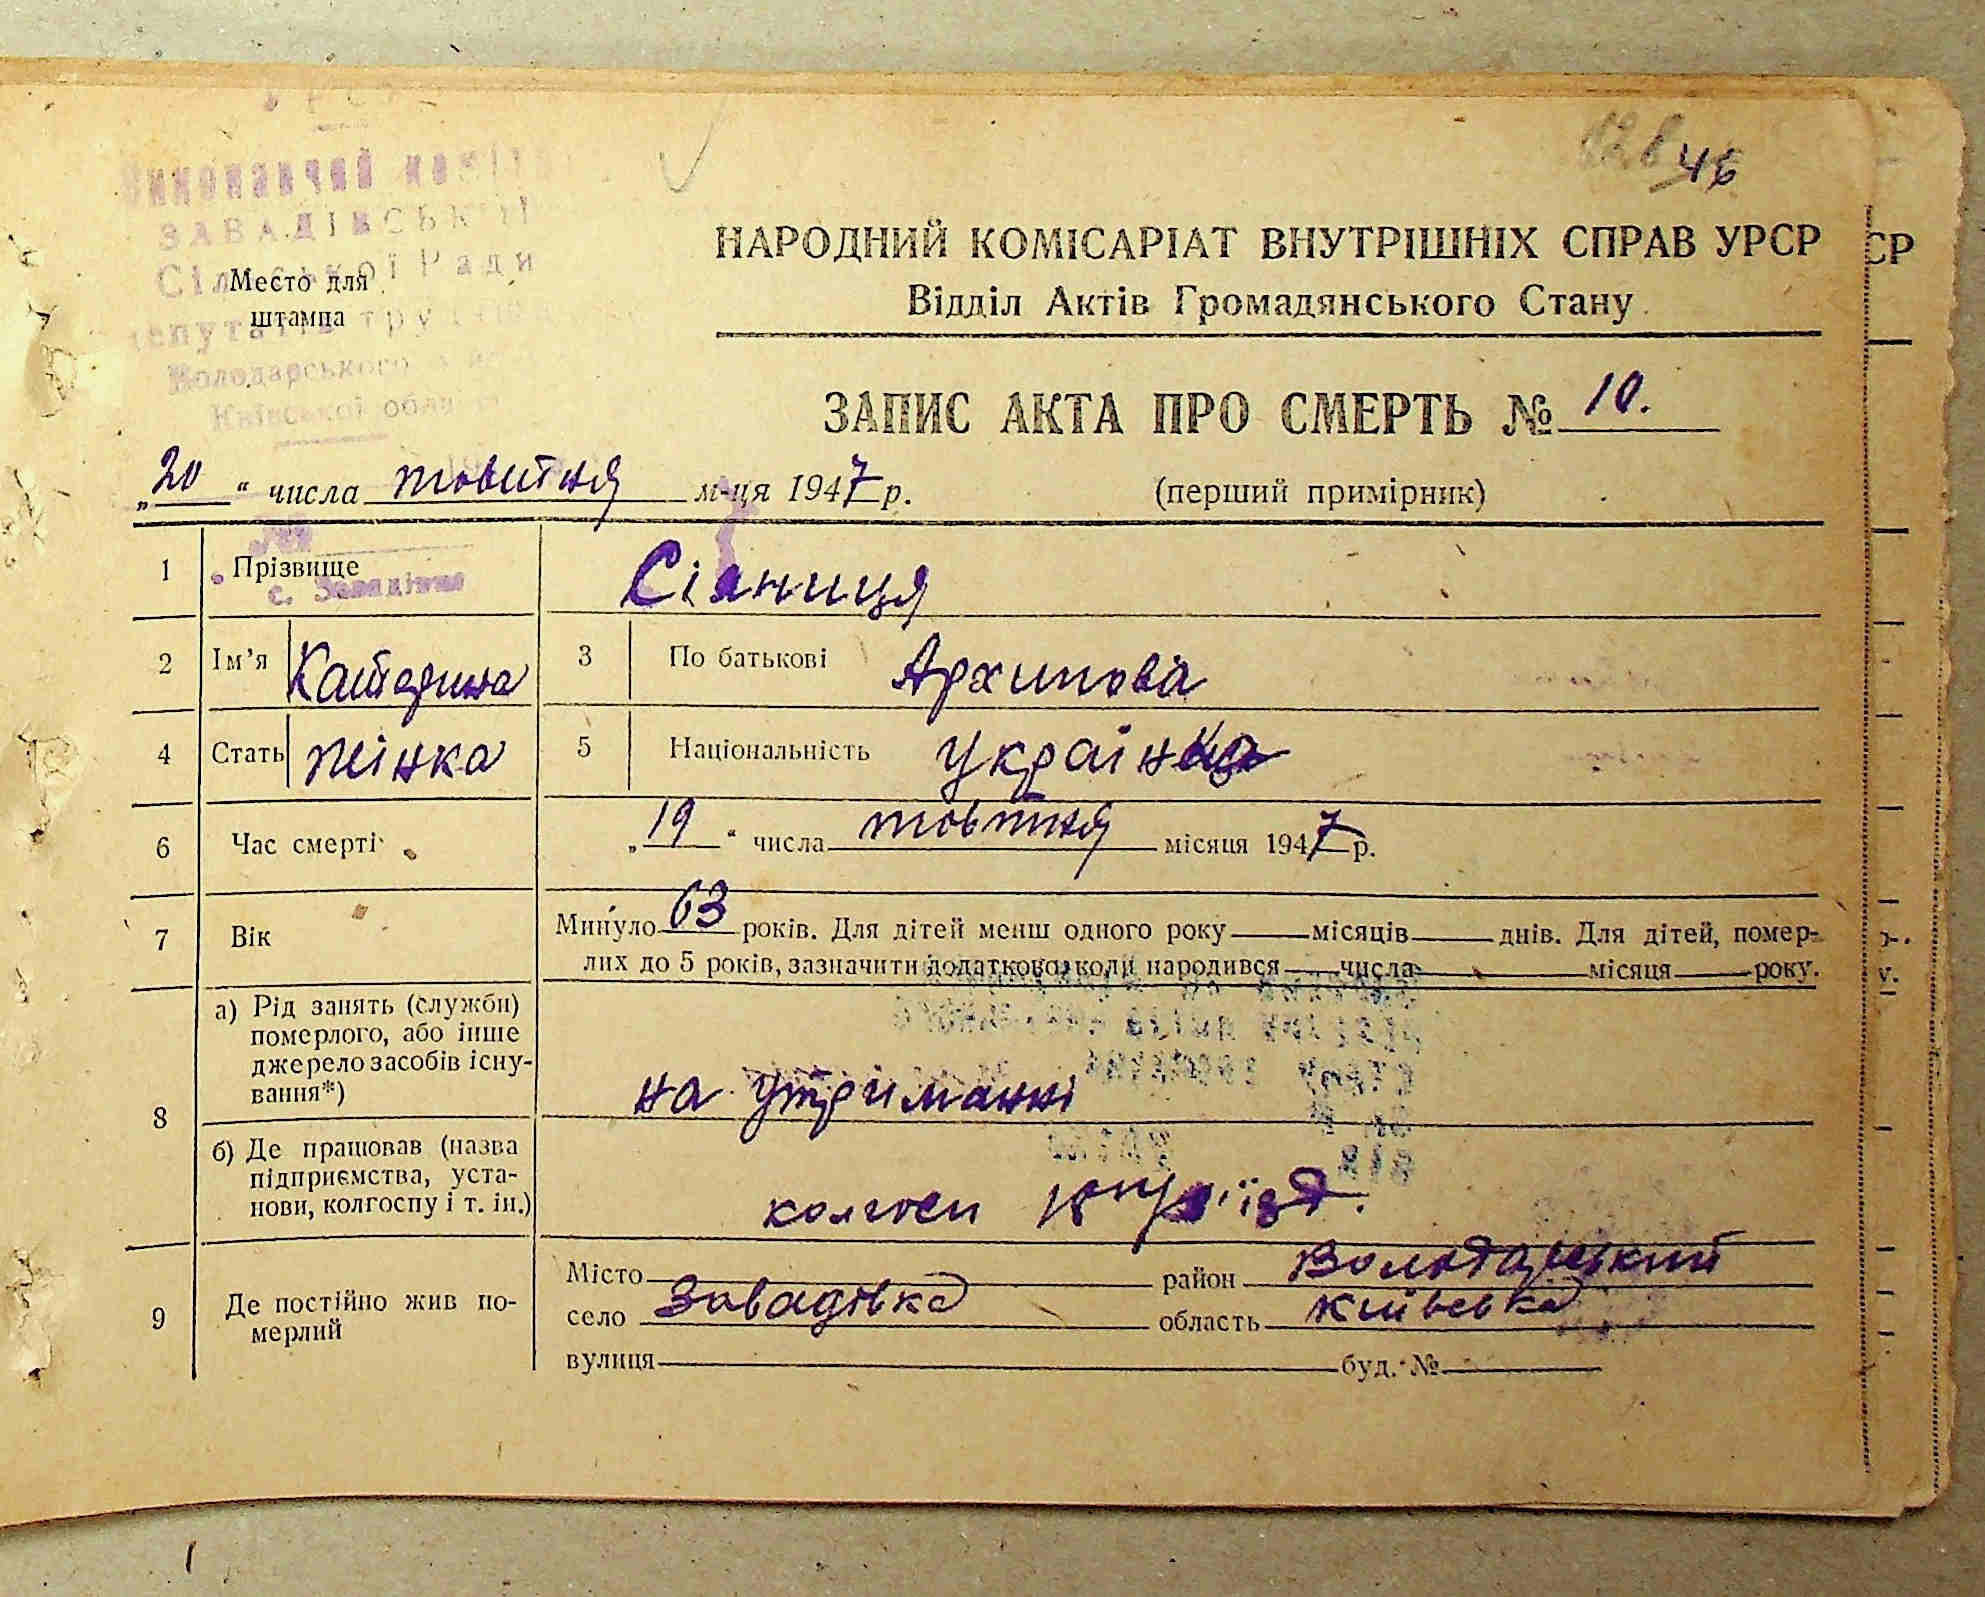 Виконавчий коміт
ЗАВАДІВСЬКОЇ
Сільської Ради
депутатів трудящ
Володарського
Київської област
Место для
штампа
46
НАРОДНИЙ КОМІСАРІАТ ВНУТРІШНІХ СПРАВ УРСР
СР
Відділ Актів Громадянського Стану
ЗАПИС АКТА ПРО СМЕРТЬ № 10.
„20“ числа жовтня м-ця 1947 р. (перший примірник)
1 Прізвище Сіяниця
с. Завадівка
2 Ім’я Катерина 3 По батькові Архипова
4 Стать жінка 5 Національність українка
6 Час смерті „19“ числа жовтня місяця 1947 р.
7 Вік Минуло 63 років. Для дітей менш одного року місяців днів. Для дітей, помер-
лих до 5 років, зазначити додатково, коли народився числа місяця року.
8 а) Рід занять (служби)
померлого, або інше
джерело засобів існу-
вання*)
на утриманні
б) Де працював (назва
підприємства, уста-
нови, колгоспу і т. ін.)
колгосп
9 Де постійно жив по-
мерлий
Місто район Володарський
село Завадівка область Київська
вулиця буд. №